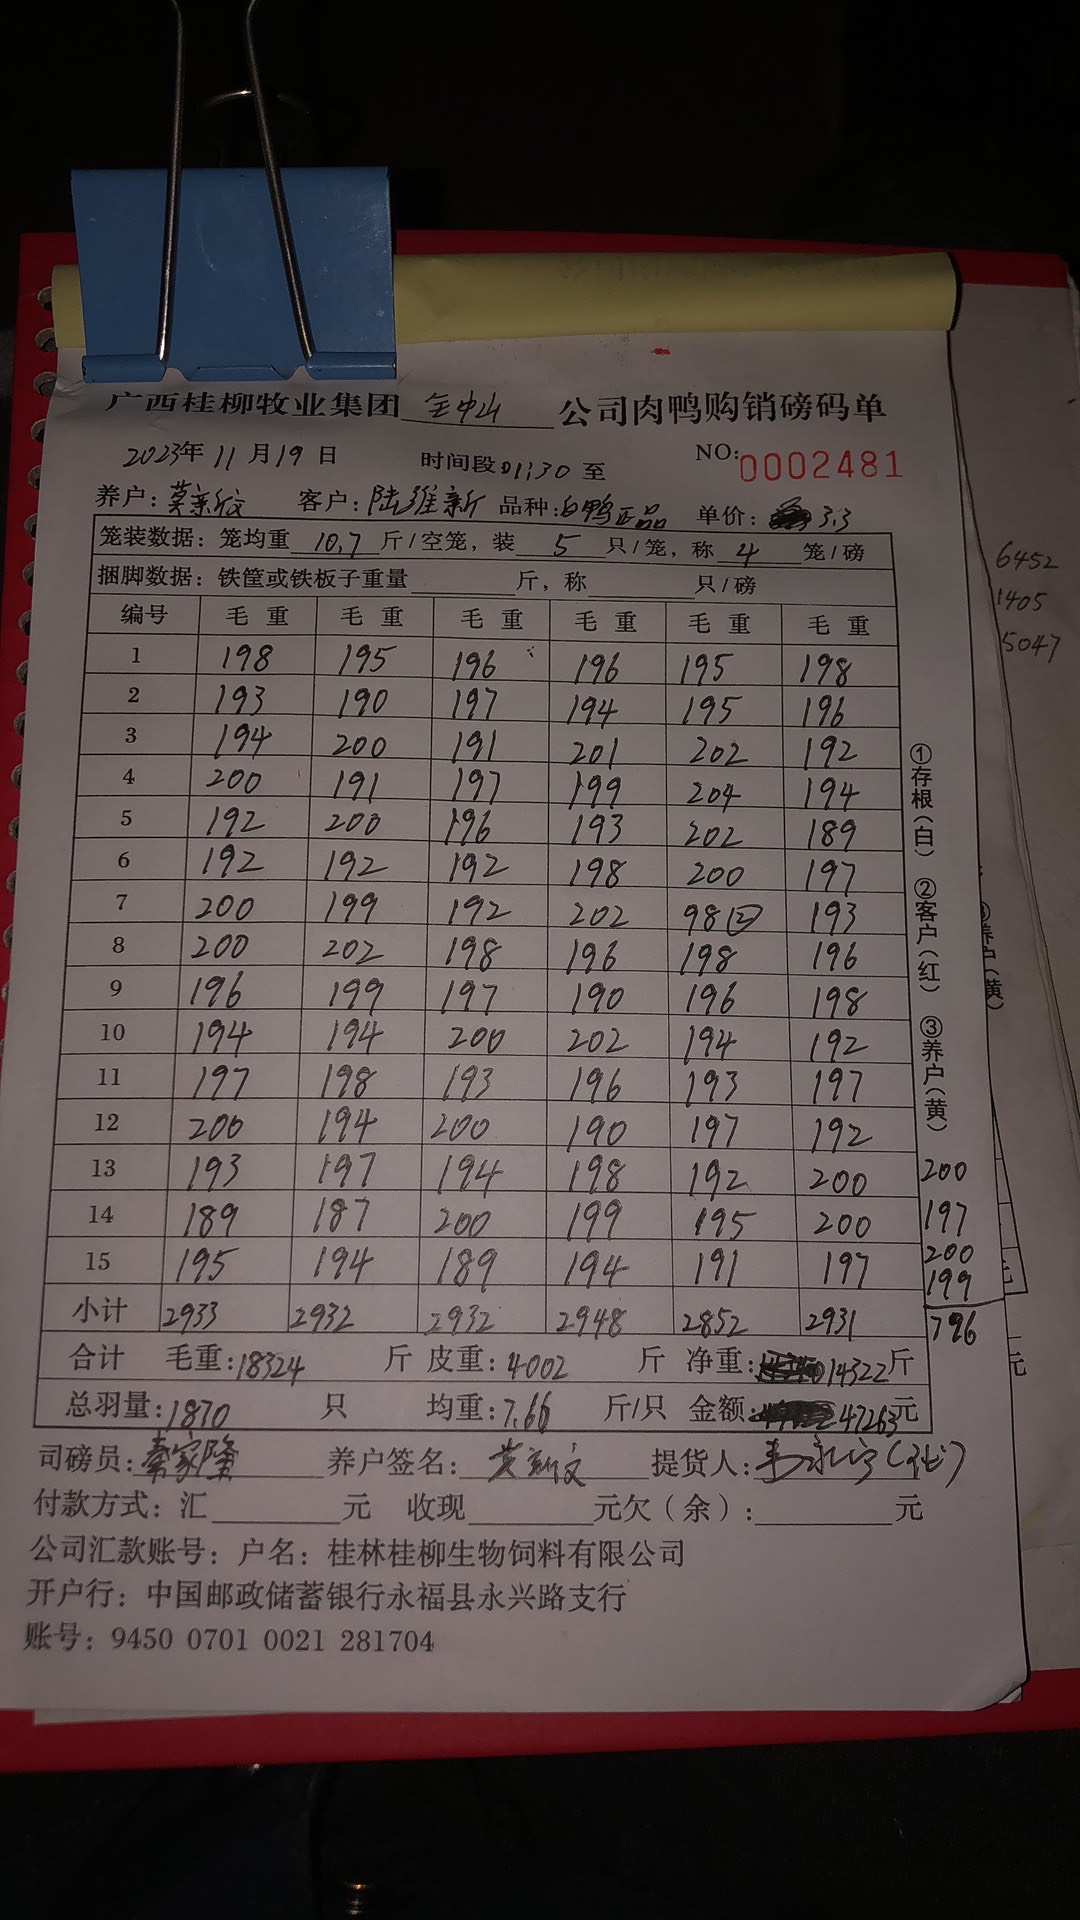 广西桂柳牧业集团 全中山 公司肉鸭购销磅码单
2023年 11 月 19 日 时间段01:30 至 NO:0002481
养户: 莫新文 客户: 陆维新 品种:白鸭正品 单价: 3.3
笼装数据: 笼均重 10.7 斤/空笼, 装 5 只/笼, 称 4 笼/磅
捆脚数据: 铁筐或铁板子重量 斤, 称 只/磅
编号 毛重 毛重 毛重 毛重 毛重 毛重
1 198 195 196 196 195 198
2 193 190 197 194 195 196
3 194 200 191 201 202 192
4 200 191 197 199 204 194
5 192 200 196 193 202 189
6 192 192 192 198 200 197
7 200 199 192 202 98② 193
8 200 202 198 196 198 196
9 196 199 197 190 196 198
10 194 194 200 202 194 192
11 197 198 193 196 193 197
12 200 194 200 190 197 192
13 193 197 194 198 192 200 200
14 189 187 200 199 195 200 197
200
15 195 194 189 194 191 197 199
小计 2933 2932 2932 2948 2852 2931 796
合计 毛重:18324 斤 皮重:4002 斤 净重: 14322斤
总羽量:1870 只 均重:7.66 斤/只 金额: 47263元
司磅员:秦家隆 养户签名: 莫新文 提货人:
付款方式: 汇 元 收现 元欠(余): 元
公司汇款账号: 户名: 桂林桂柳生物饲料有限公司
开户行: 中国邮政储蓄银行永福县永兴路支行
账号: 9450 0701 0021 281704
①存根(白) ②客户(红) ③养户(黄)
6452
1405
5047
养户(黄)
元